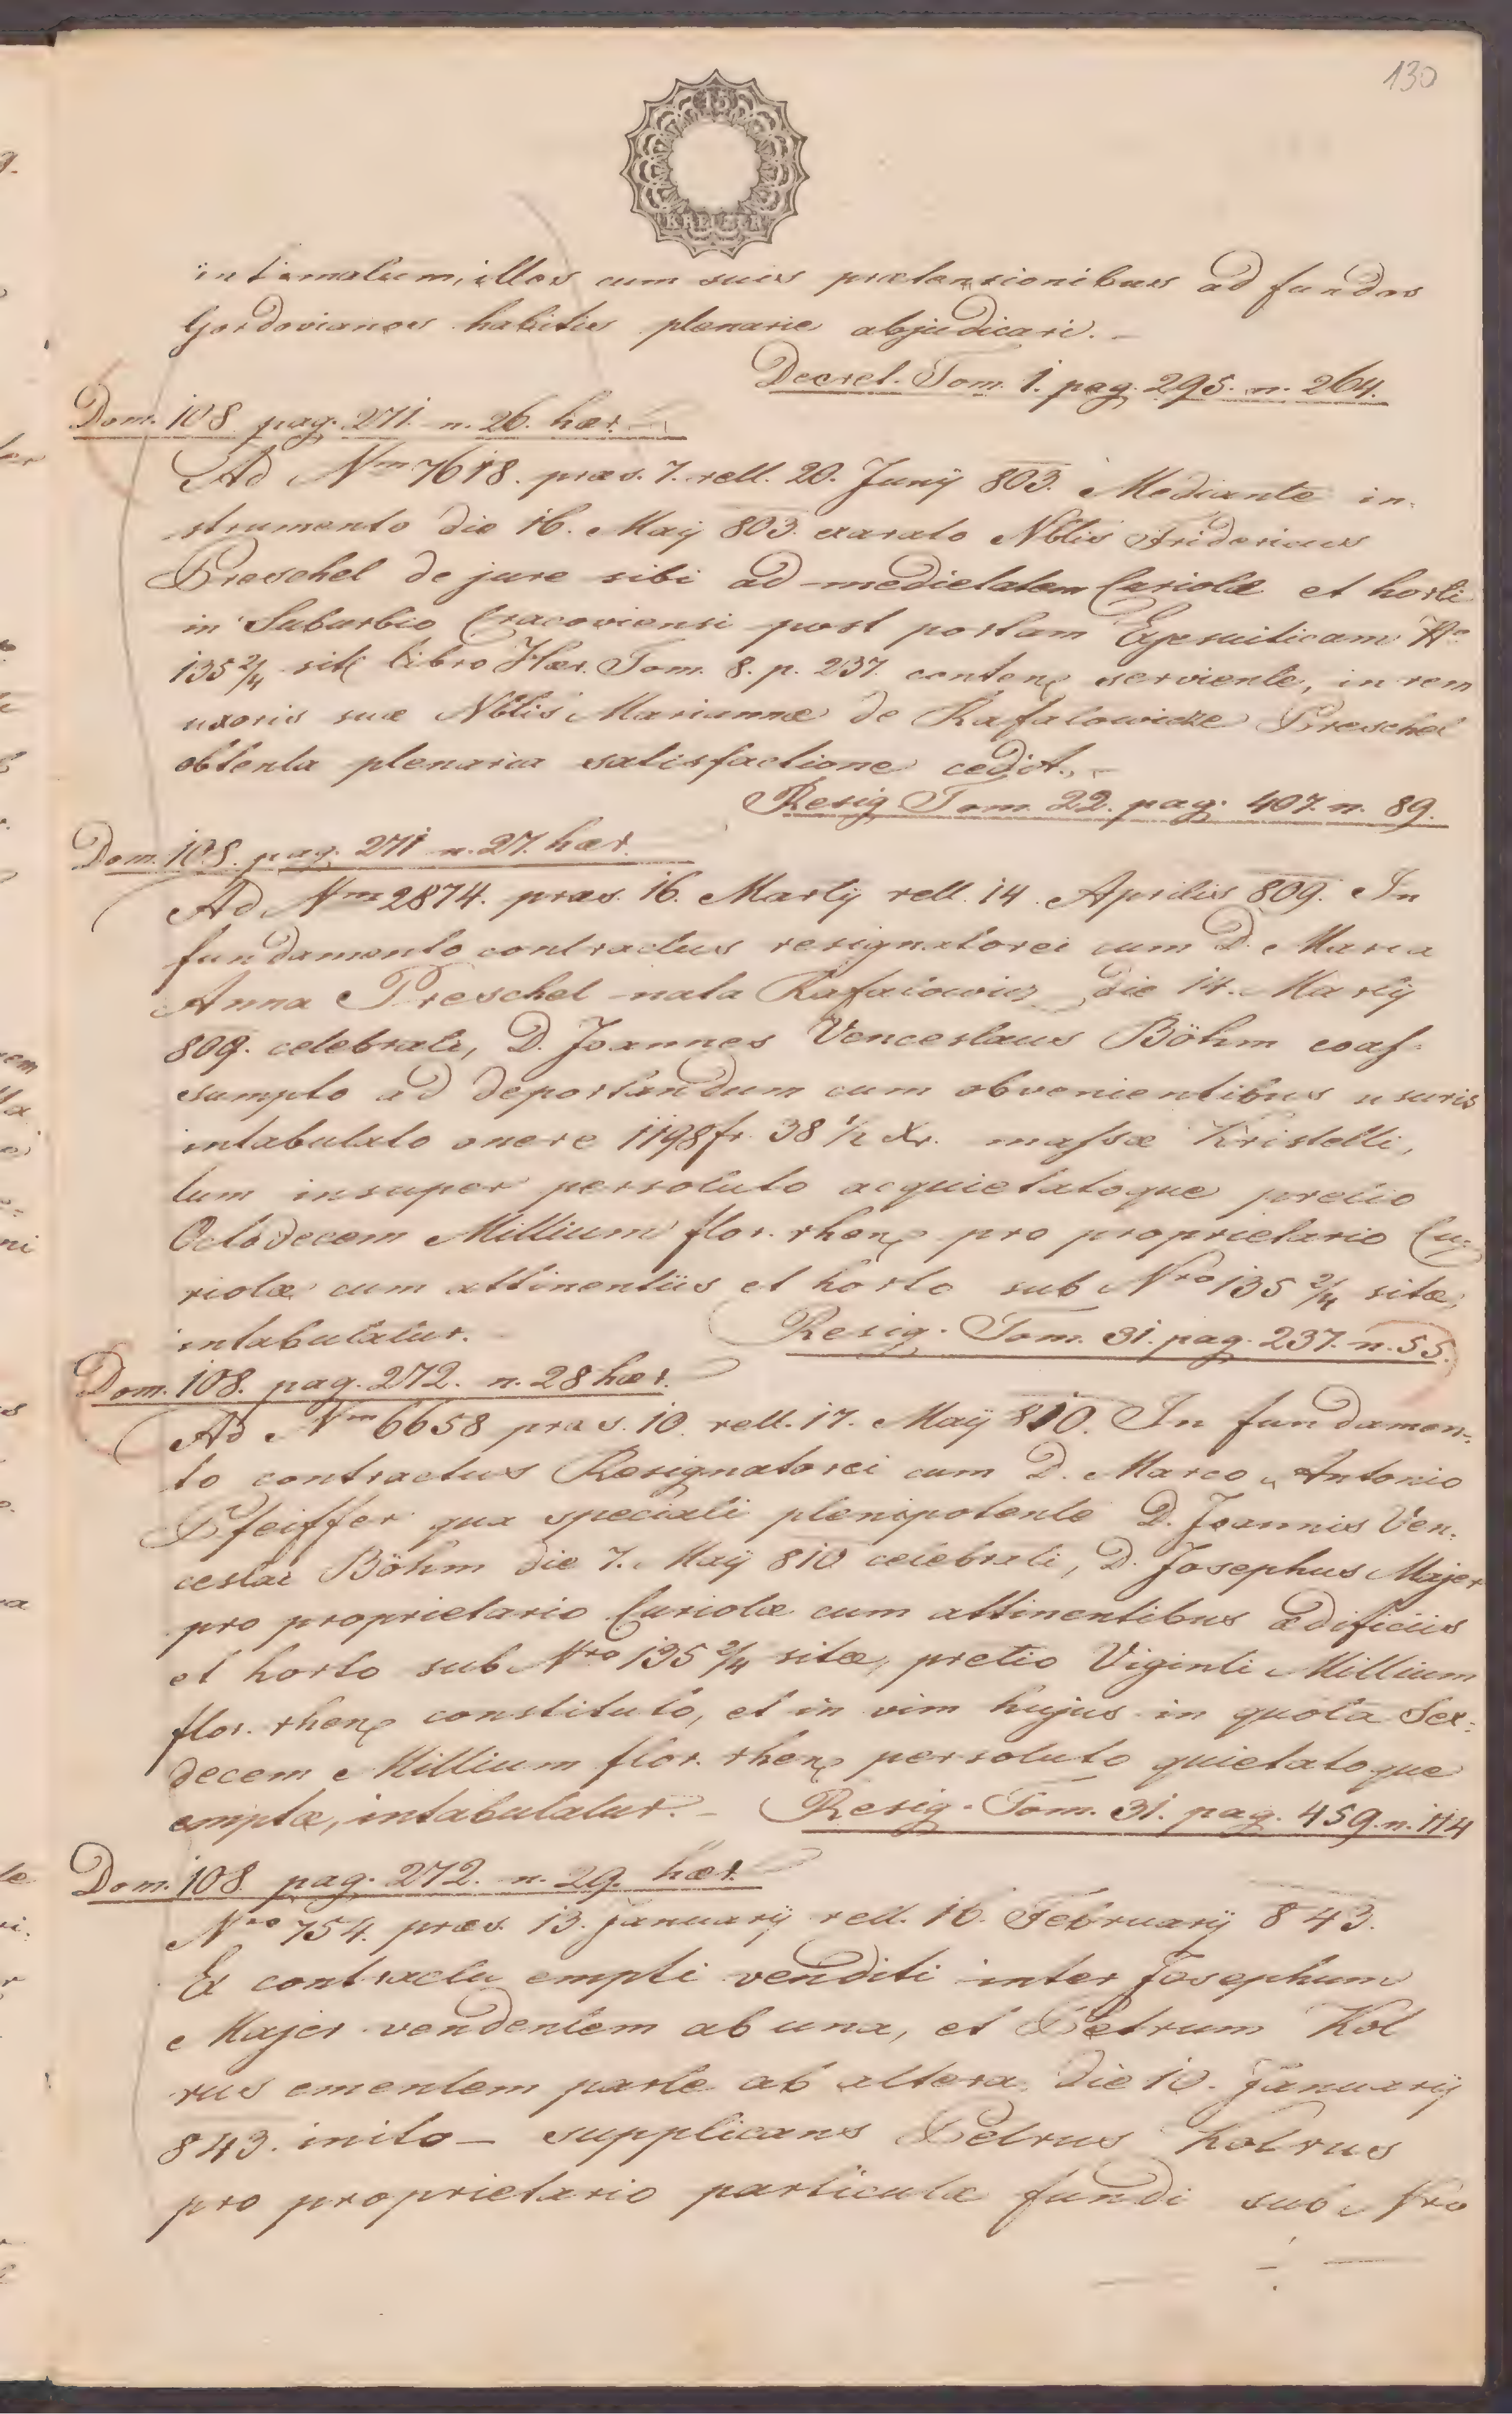 130
15
KREUZER
intimatum, illos cum suis prætensionibus ad fundos
Gordovianos habitis plenarie abjudicari. –
Decret. Tom. 1. pag. 295. n. 264.
Dom. 108. pag. 271. n. 26. hær.
Ad Nm 7618. præs. 7. rell. 20. Junÿ 803. Mediante in-
strumento die 16. Maÿ 803. exarato Nblis Fridericus
Preschel de jure sibi ad medietatem Curiolæ et horti
in Suburbio Cracoviensi post portam Exjesuiticam No
135 2/4 sit libro Hær. Tom. 8. p. 237. conten serviente, in rem
uxoris suæ Nblis Mariannæ de Rafalowicze Preschel
obtenta plenaria satisfactione cedit. –
Resig. Tom. 22. pag. 407. n. 89.
Dom. 108. pag. 271 n. 27. hær.
Ad Nm 2874. præs. 16. Martÿ rell. 14. Aprilis 809. In
fundamento contractus resignatorei cum D. Maria
Anna Preschel nata Rafalowicz die 14. Martÿ
809. celebrati, D. Joannes Venceslaus Böhm coas-
sumpto ad deportandum cum obvenientibus usuris
intabulato onere 1198 fr. 38 1/2 xr. massæ Kristelli,
tum insuper persoluto acquietatoque pretio
Octodecem Millium flor. rhen pro proprietario Cu-
riolæ cum attinentiis et horto sub Nro 135 2/4 sitæ,
intabulatur.
Resig. Tom. 31. pag. 237. n. 55.
Dom. 108. pag. 272. n. 28 hær.
Ad Nm 6658 præs. 10. rell. 17. Maÿ 810. In fundamen-
to contractus Resignatorei cum D. Marco Antonio
Pfeiffer qua speciali plenipotente D. Joannis Ven-
ceslai Böhm die 7. Maÿ 810 celebrati, D. Josephus Majer
pro proprietario Curiolæ cum attinentibus ædificiis
et horto sub Nro 135 2/4 sitæ, pretio Viginti Millium
flor. rhen constituto, et in vim hujus in quota Sex-
decem Millium flor. rhen persoluto quietatoque
emptæ, intabulatur. – Resig. Tom. 31. pag. 459. n. 114
Dom. 108. pag. 272. n. 29. hær.
Nro 754. præs. 13. Januarÿ rell. 16. Februarÿ 843.
Ex contractu empti venditi inter Josephum
Majer vendentem ab una, et Petrum Kot
rus ementem parte ab altera die 10. Januarÿ
843. inito – supplicans Petrus Kotrus
pro proprietario particulæ fundi sub Nro